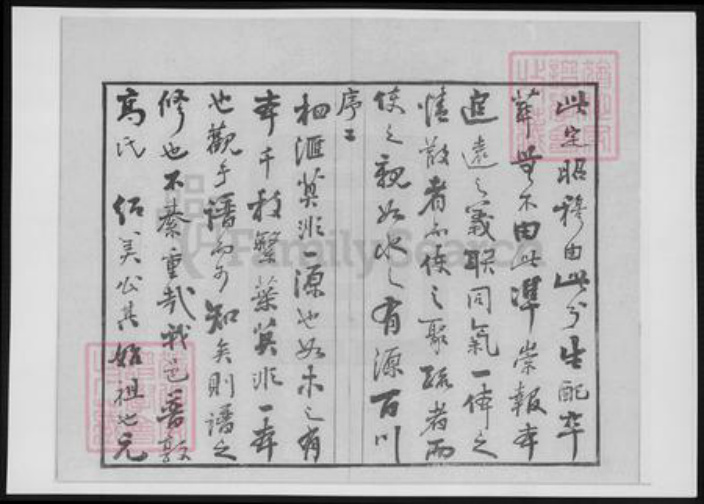 此定昭穆由此分生配卒
葬無不由此準崇報本
追遠之義聯同氣一体之
情散者而使之聚疏者而
使之親如水之有源百川
序二
相滙莫非一源也如木之有
本千枝繁葉莫非一本
也觀乎譜而可知矣則譜之
修也不綦重哉我邑普敦
高氏 紹美公其始祖也元
FamilySearch